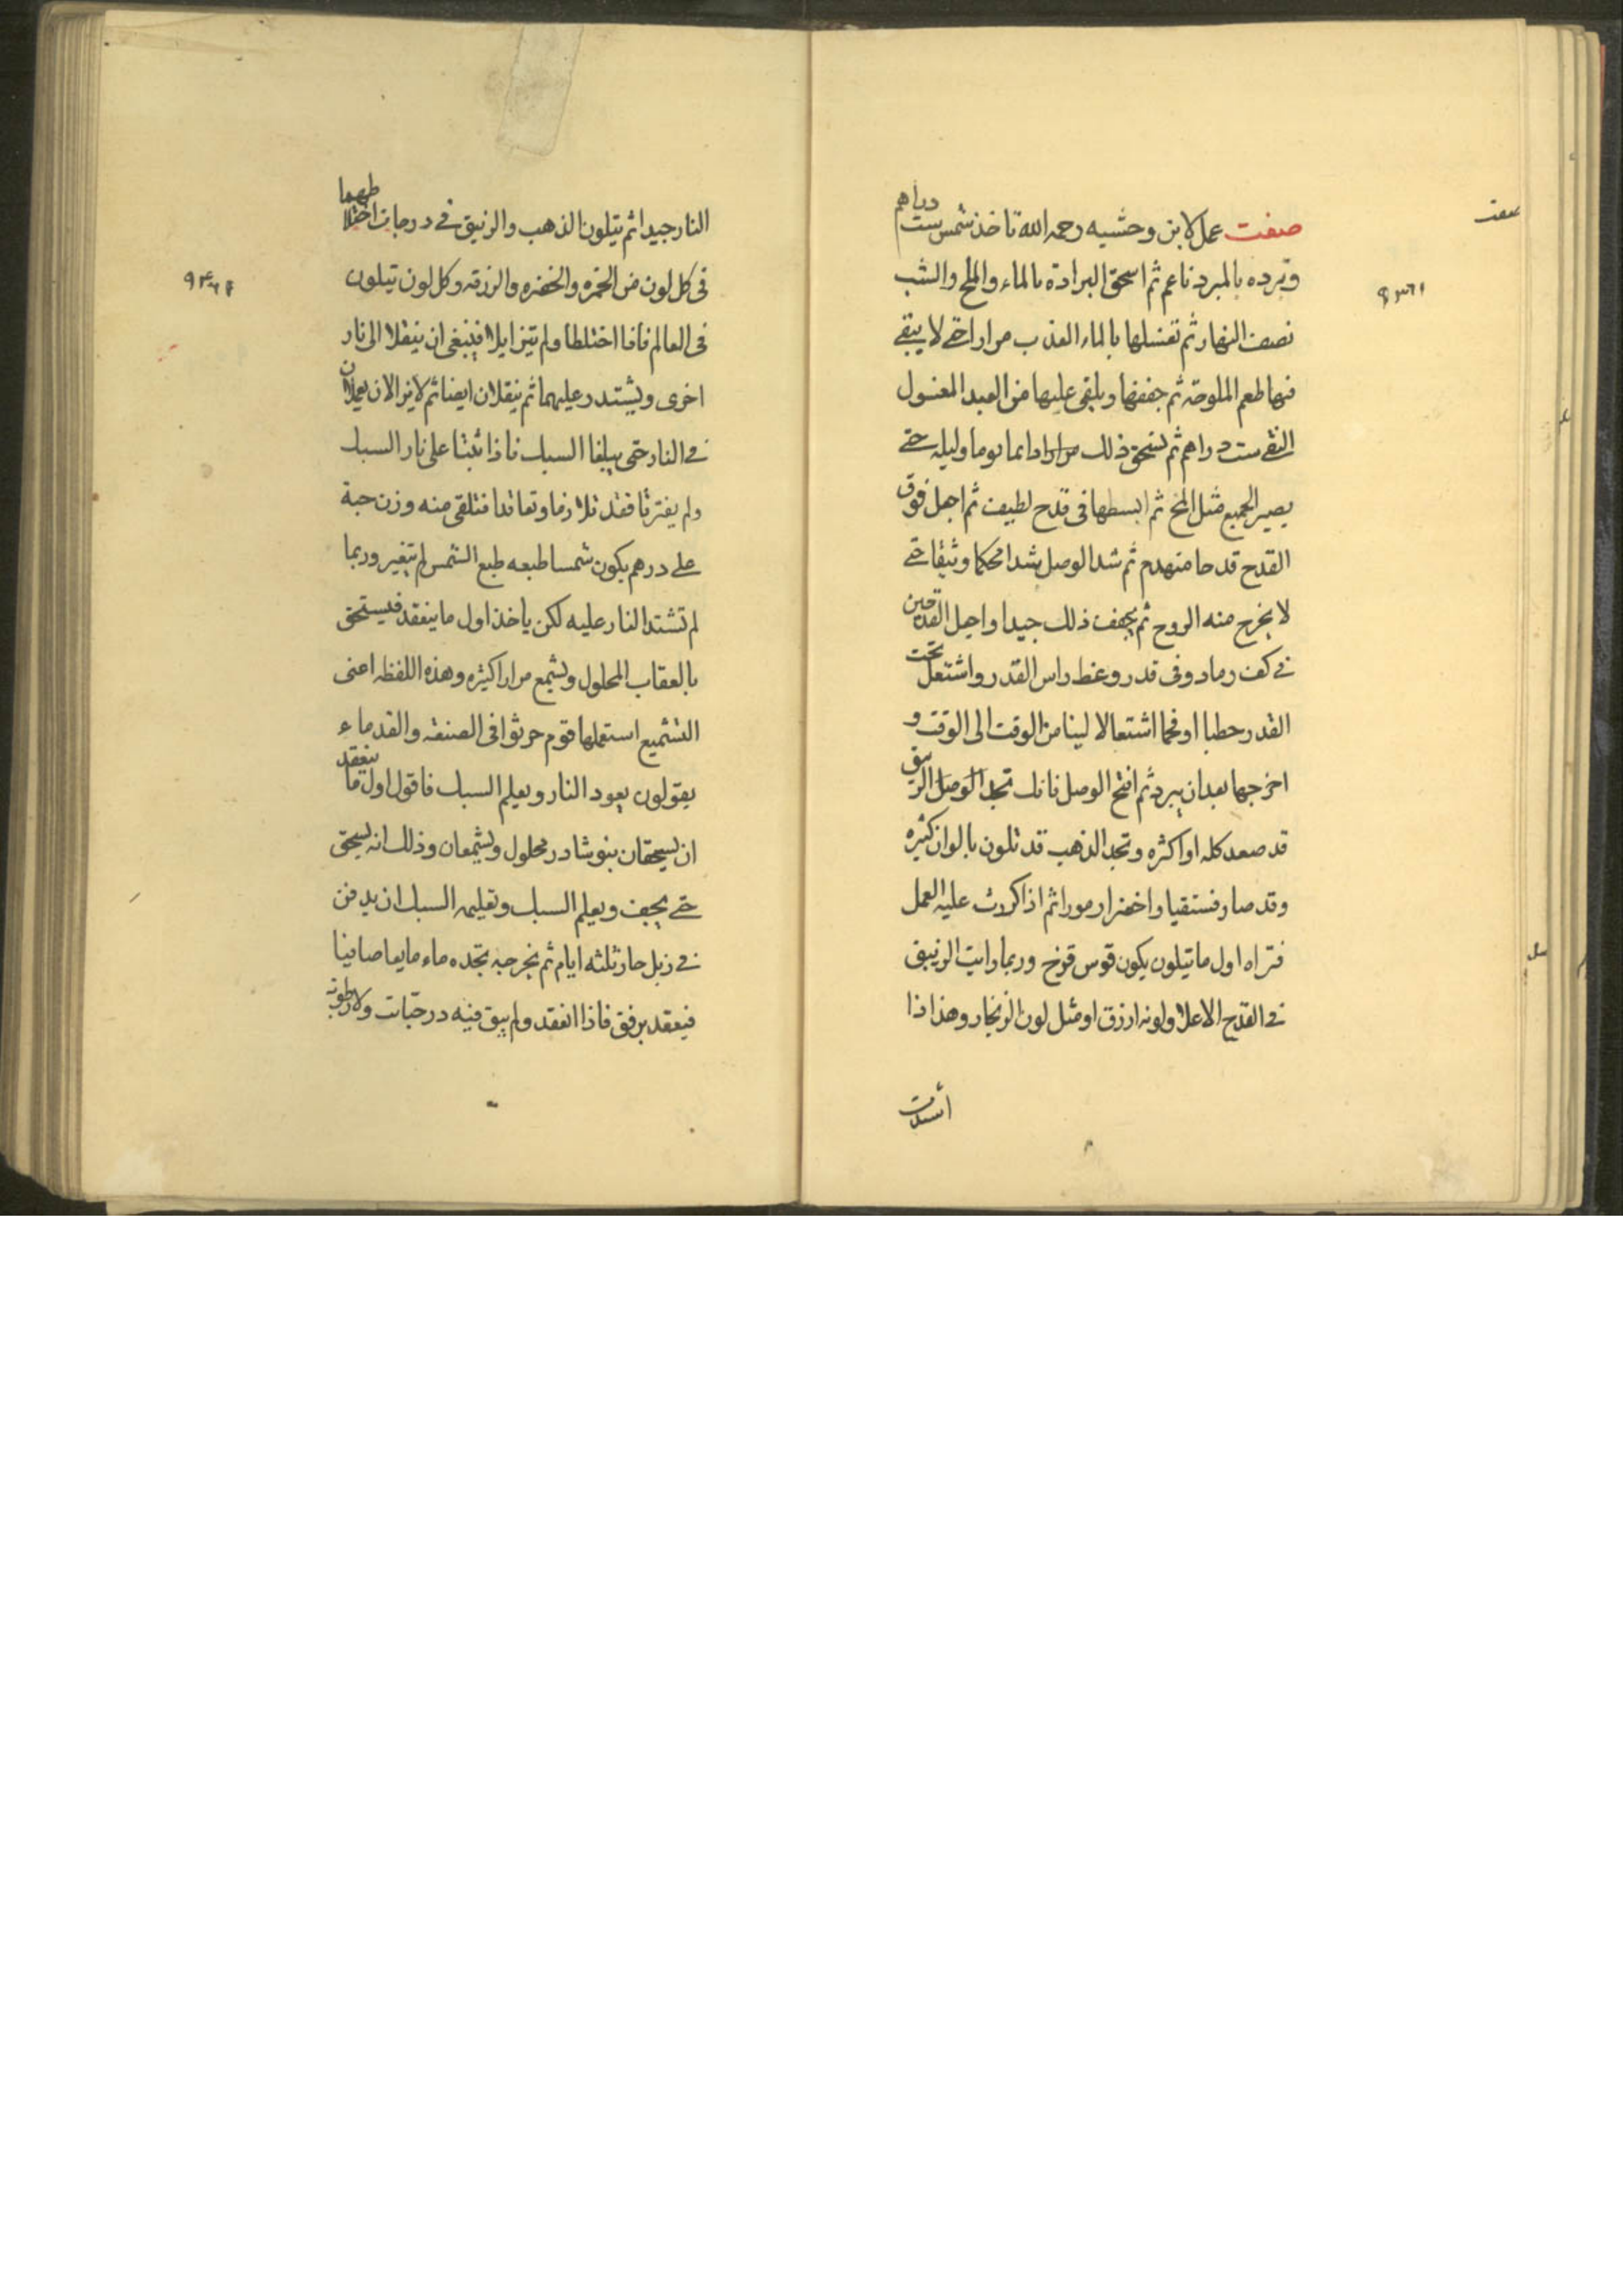 صفت عمل لابن وحشيه رحمه الله تاخذ شمس ست دراهم
وتبرده بالمبرد ناعم ثم اسحق البرادة بالماء والملح والشب
نصف النهار ثم تغسلها بالماء العذب مرارا حتى لا يبقى
فيها طعم الملوحة ثم جففها ويلقى عليها من العبد المغسول
النقى ست دراهم ثم تسحق ذلك مرارا دايما يوما وليله حتى
يصير الجميع مثل المخ ثم ابسطها فى قدح لطيف ثم اجعل فوق
القدح قدحا منهدم ثم شد الوصل شدا محكما وثيقا حتى
لا يخرج منه الروح ثم يجفف ذلك جيدا واجعل القدحين
فى كف رماد وفى قدر وغط راس القدر واشتعل تحت
القدر حطبا او فحما اشتعالا لينا من الوقت الى الوقت و
اخرجها بعد ان يبرد ثم افتح الوصل فانك تجد الوصل الزيبق
قد صعد كله او اكثره وتجد الذهب قد تلون بالوان كثيره
وقد صار فستقيا واخضر ارمورا ثم اذا كررت عليه العمل
فتراه اول ما يتلون يكون قوس قزح وربما رايت الزيبق
فى القدح الاعلا ولونه ازرق او مثل لون الزنجار وهذا اذا
النار جيدا ثم يتلون الذهب والزيبق فى درجات اختلاطهما
فى كل لون من الحمره والخضره والزرقه وكل لون يتلون
فى العالم فاذا اختلطا ولم يتزايلا فينبغى ان ينقلا الى نار
اخرى ويشتد عليهما ثم ينقلان ايضا ثم لا يزالان يعملان
فى النار حتى يبلغا السبك فاذا ثبتا على نار السبك
ولم يفترقا فقد تلازما وتعاقدا فتلقى منه وزن حبة
على درهم يكون شمسا طبعه طبع الشمس لم يتغير وربما
لم تشتد النار عليه لكن ياخذ اول ما ينعقد فيستحق
بالعقاب المحلول ويشمع مرارا كثيره وهذه اللفظه اعنى
التشميع استعملها قوم حرثوا فى الصنعه والقدماء
يقولون يعود النار ويعلم السبك فاقول اول ما ينعقد
ان يسحقان بنوشادر محلول ويشمعان وذلك انه يسحق
حتى يجف ويعلم السبك وتعليمه السبك ان يدفن
فى زبل حار ثلثه ايام ثم يخرجه تجده ماء مايعا صافيا
فيعقد برفق فاذا انعقد ولم يبق فيه درحبات ولا رطوبه